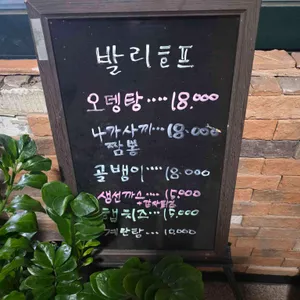 발리호프
오뎅탕····18.000
나가사끼···18.000
짬뽕
골뱅이····18.000
생선까스···15.000
+감자튀김
햄치즈···15.000
계란탕···10,000